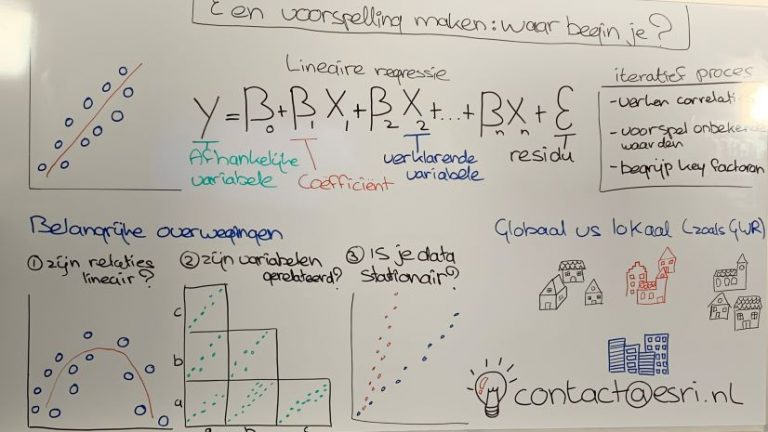 Een voorspelling maken: waar begin je?
Lineaire regressie
Y = β0 + β1 X1 + β2 X2 + ... + βn Xn + ε
Afhankelijke variabele
Coëfficient
verklarende variabele
residu
iteratief proces
- verken correlati
- voorspel onbeken
waarden
- begrijp key factoren
Belangrijke overwegingen
① zijn relaties
lineair?
② zijn variabelen
gerelateerd?
③ Is je data
stationair?
c
b
a
Globaal vs lokaal (zoals GWR)
contact@esri.nl